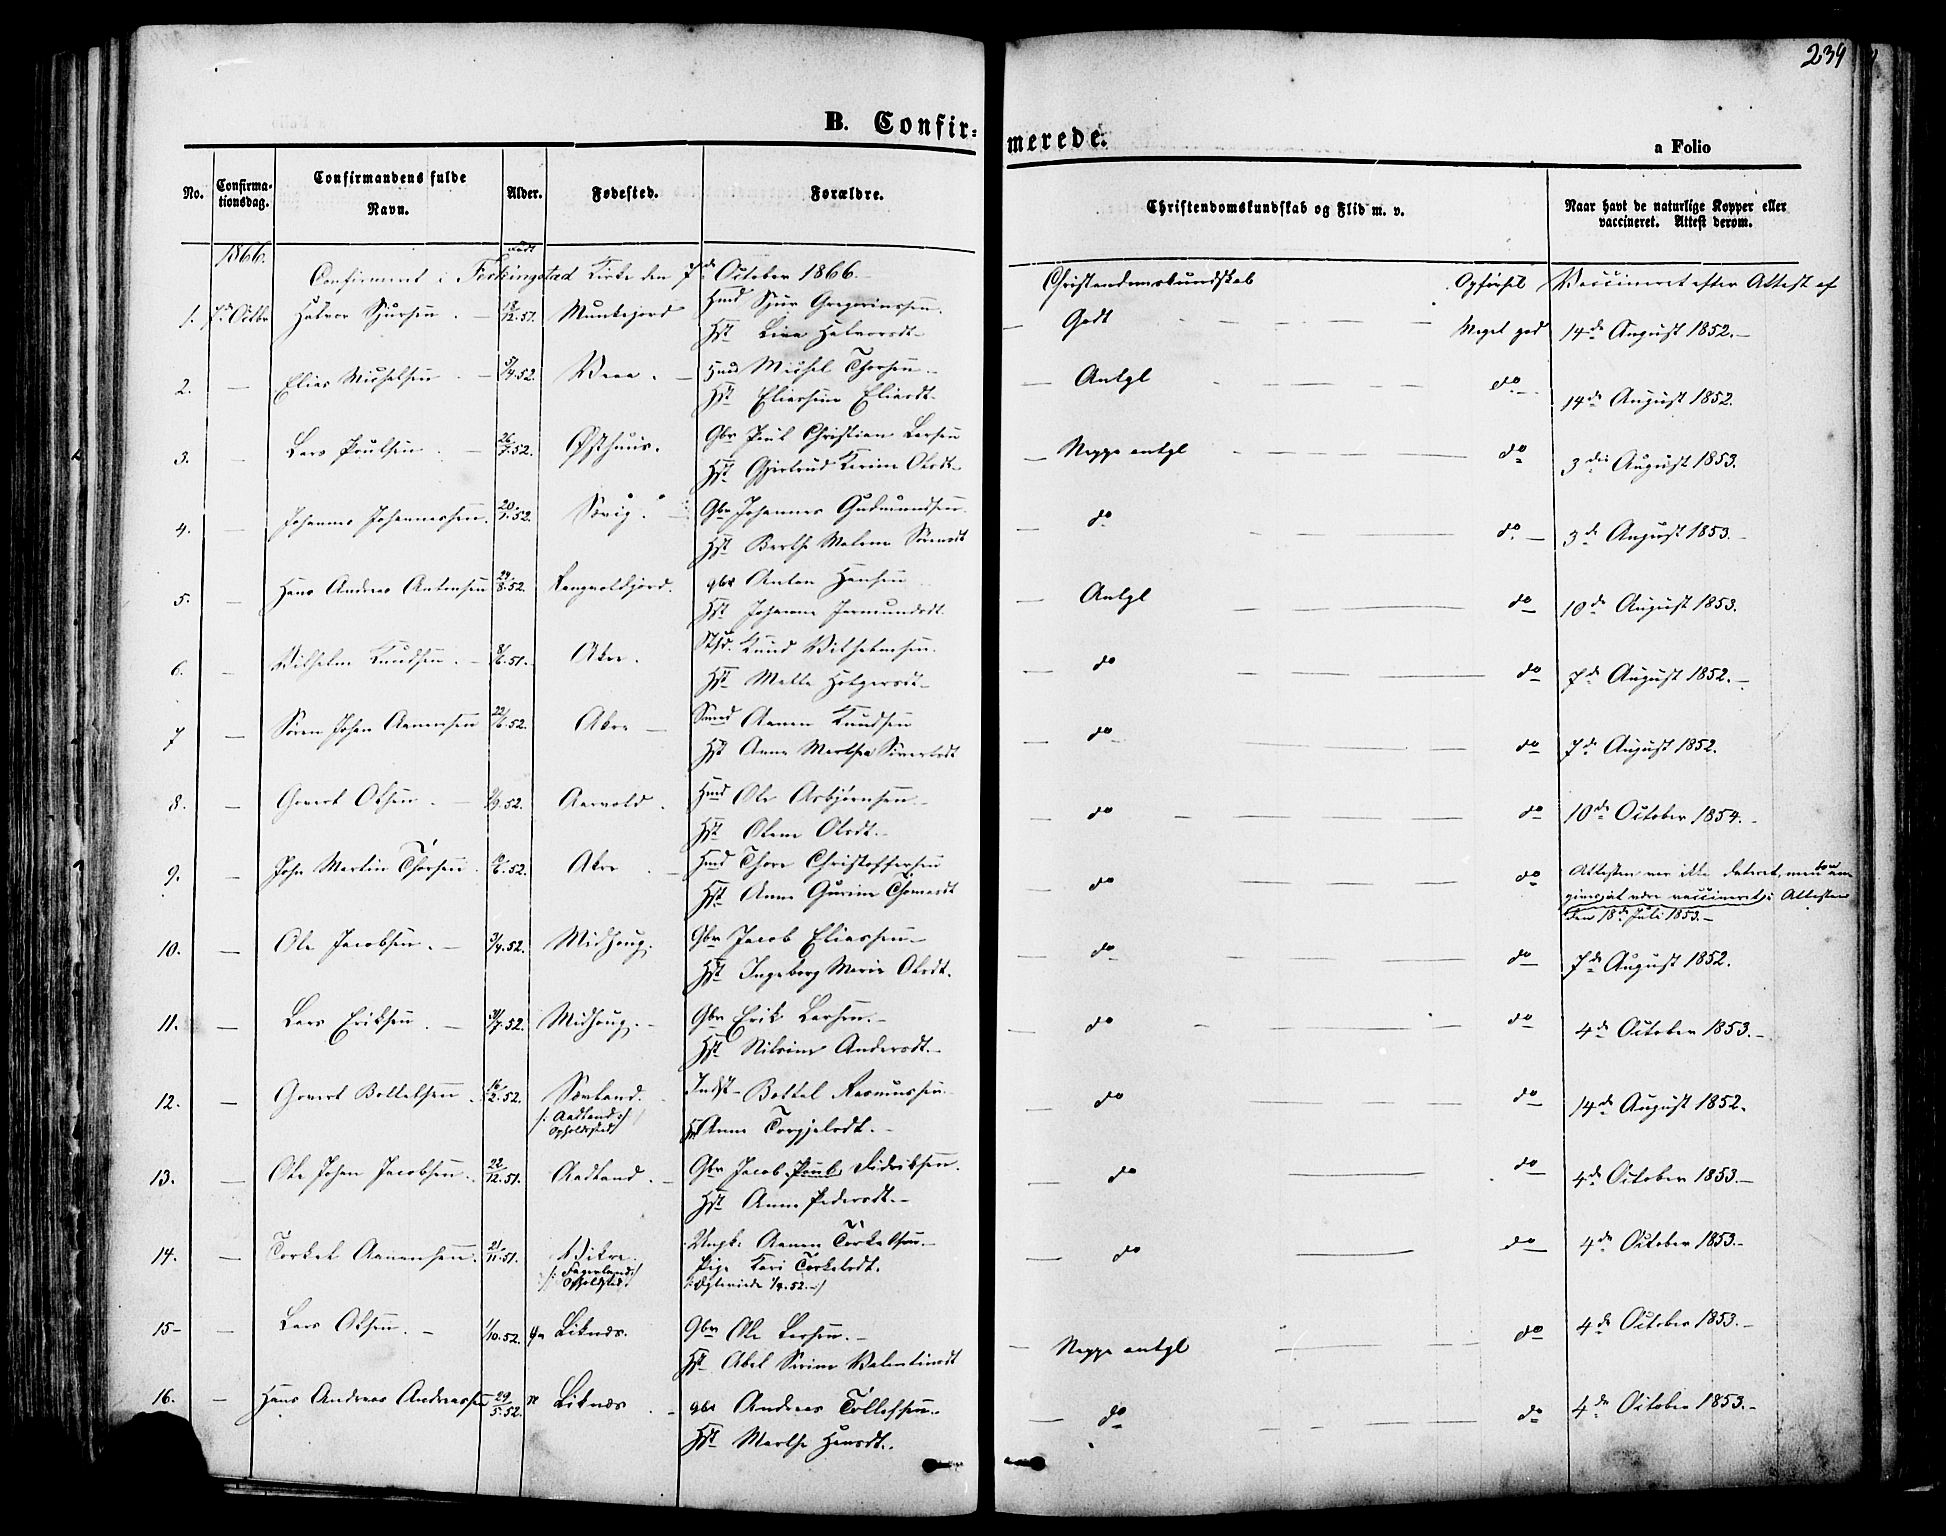 239
B. Confir-
merede.
a Folio
No.
Confirma-
tionsdag.
Confirmandens fulde
Navn.
Alder.
Fødested.
Forældre.
Christendomskundskab og Flid m. v.
Naar havt de naturlige Kopper eller
vaccineret. Attest derom.
1866.
Født
Confirmeret i Ferkingstad Kirke den 7de October 1866.
Christendomskundskab
Opførsel
Vaccineret efter Attest af
1. 7de Octbr Halvor Sjursen 51. Munkejord Hmd Sjur Gregoriussen.
Hst Liva Halvorsdt.
Godt
Meget god
14de August 1852.
2. Elias Michelsen 5/4.52. Veaa Hmd Michel Thorsen
Hst Eliassine Eliasdt.
Antgl
do
14de August 1852.
3. Lars Poulsen 26/7.52. Østhuus. Gbr Poul Christian Larsen
Hst Gjertrud Karine Olsdt.
Neppe antgl
do
3die August 1853.
4. Johannes Johannessen. 20/1.52. Sævig. Gbr Johannes Gudmundsen
Hst Berthe Malene Sørensdt
do
do
3de August 1853.
5. Hans Andreas Antonsen 8.52. Langvoldfjord. gbr Anton Hansen
Hst Johanne Jermundsdt.
Antgl
do
10de August 1853.
6. Vilhelm Knudsen 8/6.51. Akre. Knud Vilhelmsen.
Hst Malla Holgersdt
do
do
7de August 1852.
7 Søren Johan Aanensen 22/6.52. Akre Aanen Knudsen
Hst Anne Marthea Siversdt
do
do
7de August 1852.
8. Govert Olsen 9.52. Aarvold. Hmd Ole Asbjørnsen
Hst Olene Olsdt.
do
do
10de October 1854.
9. John Martin Thorsen 6.52. Akre Hmd Thore Christoffersen
Hst Anne Gurine Thomasdt
do
do
Attesten var ikke dateret, men han
vaccineret i Attesten
den 18de Juli 1853.
10. Ole Jacobsen. 3/4.52. Midhoug. Gbr Jacob Eliassen
Hst Ingeborg Marie Olsdt.
do
do
7de August 1852.
11. Lars Eriksen 31/7.52. Midhoug. Gbr Erik Larsen.
Hst Nilsine Andersdt.
do
do
4de October 1853.
12. Govert Bottelsen 16/2.52. Sævland. Indst Bottel Rasmussen
/: Aadland :/
Opholdsted
Hst Anne Torgjelsdt.
do
do
14de August 1852.
13. Ole Johan Jacobsen. 22/12.51. Aadland Gbr Jacob Poul Fidriksen.
Hst Anne Pedersdt.
do
do
4de October 1853.
14. Torkel Aanensen 21/11.51. Vikre. Ungk. Aanen Torkelsen
/: Fagerland :/
Opholdsted
Pige Kari Torkelsdt.
/: Egteviede 1/4.52. :/
do
do
4de October 1853.
15 Lars Olsen. 1/10.52. Liknæs. Gbr Ole Larsen.
Hst Abel Serine Valentinsdt
Neppe antgl
do
4de October 1853.
16. Hans Andreas Andreassen 29/5.52. Liknæs gbr Andreas Tollefsen.
Hst Marthe Hansdt.
do
do
4de October 1853.